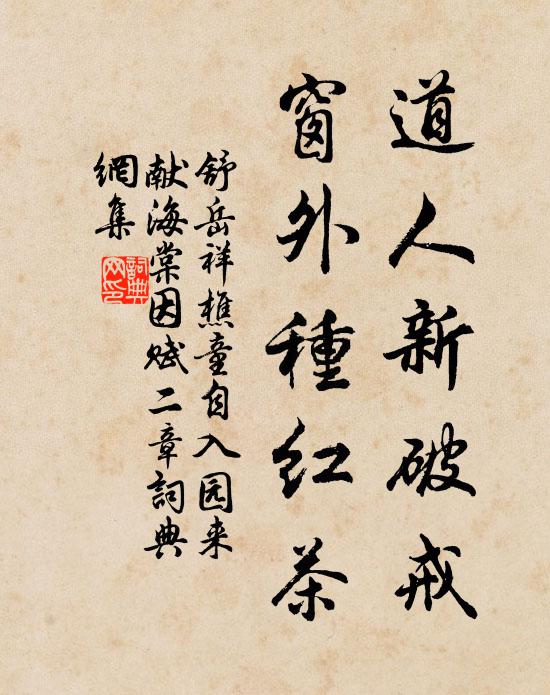 道人新破戒
窗外種红茶
舒岳祥樵童自入园来
献海棠因赋二章詞典
網集
詞典
网印